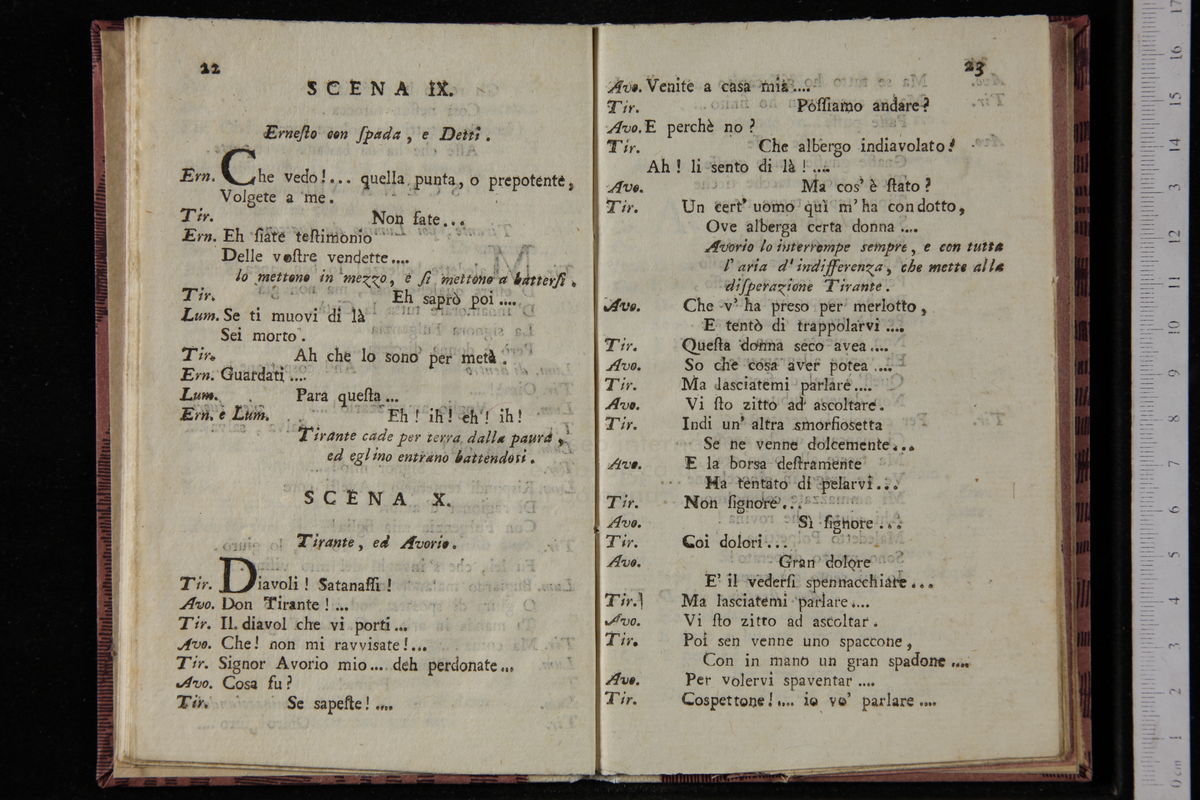 22
SCENA IX.
Ernesto con spada, e Detti.
Ern. Che vedo!... quella punta, o prepotente,
Volgete a me.
Tir. Non fate...
Ern. Eh siate testimonio
Delle vostre vendette....
lo mettono in mezzo, e si mettono a battersi.
Tir. Eh saprò poi....
Lum. Se ti muovi di là
Sei morto.
Tir. Ah che lo sono per metà.
Ern. Guardati....
Lum. Para questa...
Ern. e Lum. Eh! ih! eh! ih!
Tirante cade per terra dalla paura,
ed eglino entrano battendosi.
SCENA X.
Tirante, ed Avorio.
Tir. Diavoli! Satanassi!
Avo. Don Tirante!...
Tir. Il diavol che vi porti...
Avo. Che! non mi ravvisate!...
Tir. Signor Avorio mio... deh perdonate...
Avo. Cosa fu?
Tir. Se sapeste!....
23
Avo. Venite a casa mia....
Tir. Possiamo andare?
Avo. E perchè no?
Tir. Che albergo indiavolato!
Ah! li sento di là!....
Avo. Ma cos' è stato?
Tir. Un cert' uomo quì m' ha condotto,
Ove alberga certa donna....
Avorio lo interrompe sempre, e con tutta
l' aria d' indifferenza, che mette alla
disperazione Tirante.
Avo. Che v' ha preso per merlotto,
E tentò di trappolarvi....
Tir. Questa donna seco avea....
Avo. So che cosa aver potea....
Tir. Ma lasciatemi parlare....
Avo. Vi sto zitto ad ascoltare.
Tir. Indi un' altra smorfiosetta
Se ne venne dolcemente...
Avo. E la borsa destramente
Ha tentato di pelarvi...
Tir. Non signore...
Avo. Sì signore...
Tir. Coi dolori...
Avo. Gran dolore
E' il vedersi spennacchiare...
Tir. Ma lasciatemi parlare....
Avo. Vi sto zitto ad ascoltar.
Tir. Poi sen venne uno spaccone,
Con in mano un gran spadone....
Avo. Per volervi spaventar....
Tir. Cospettone!.... io vo' parlare....